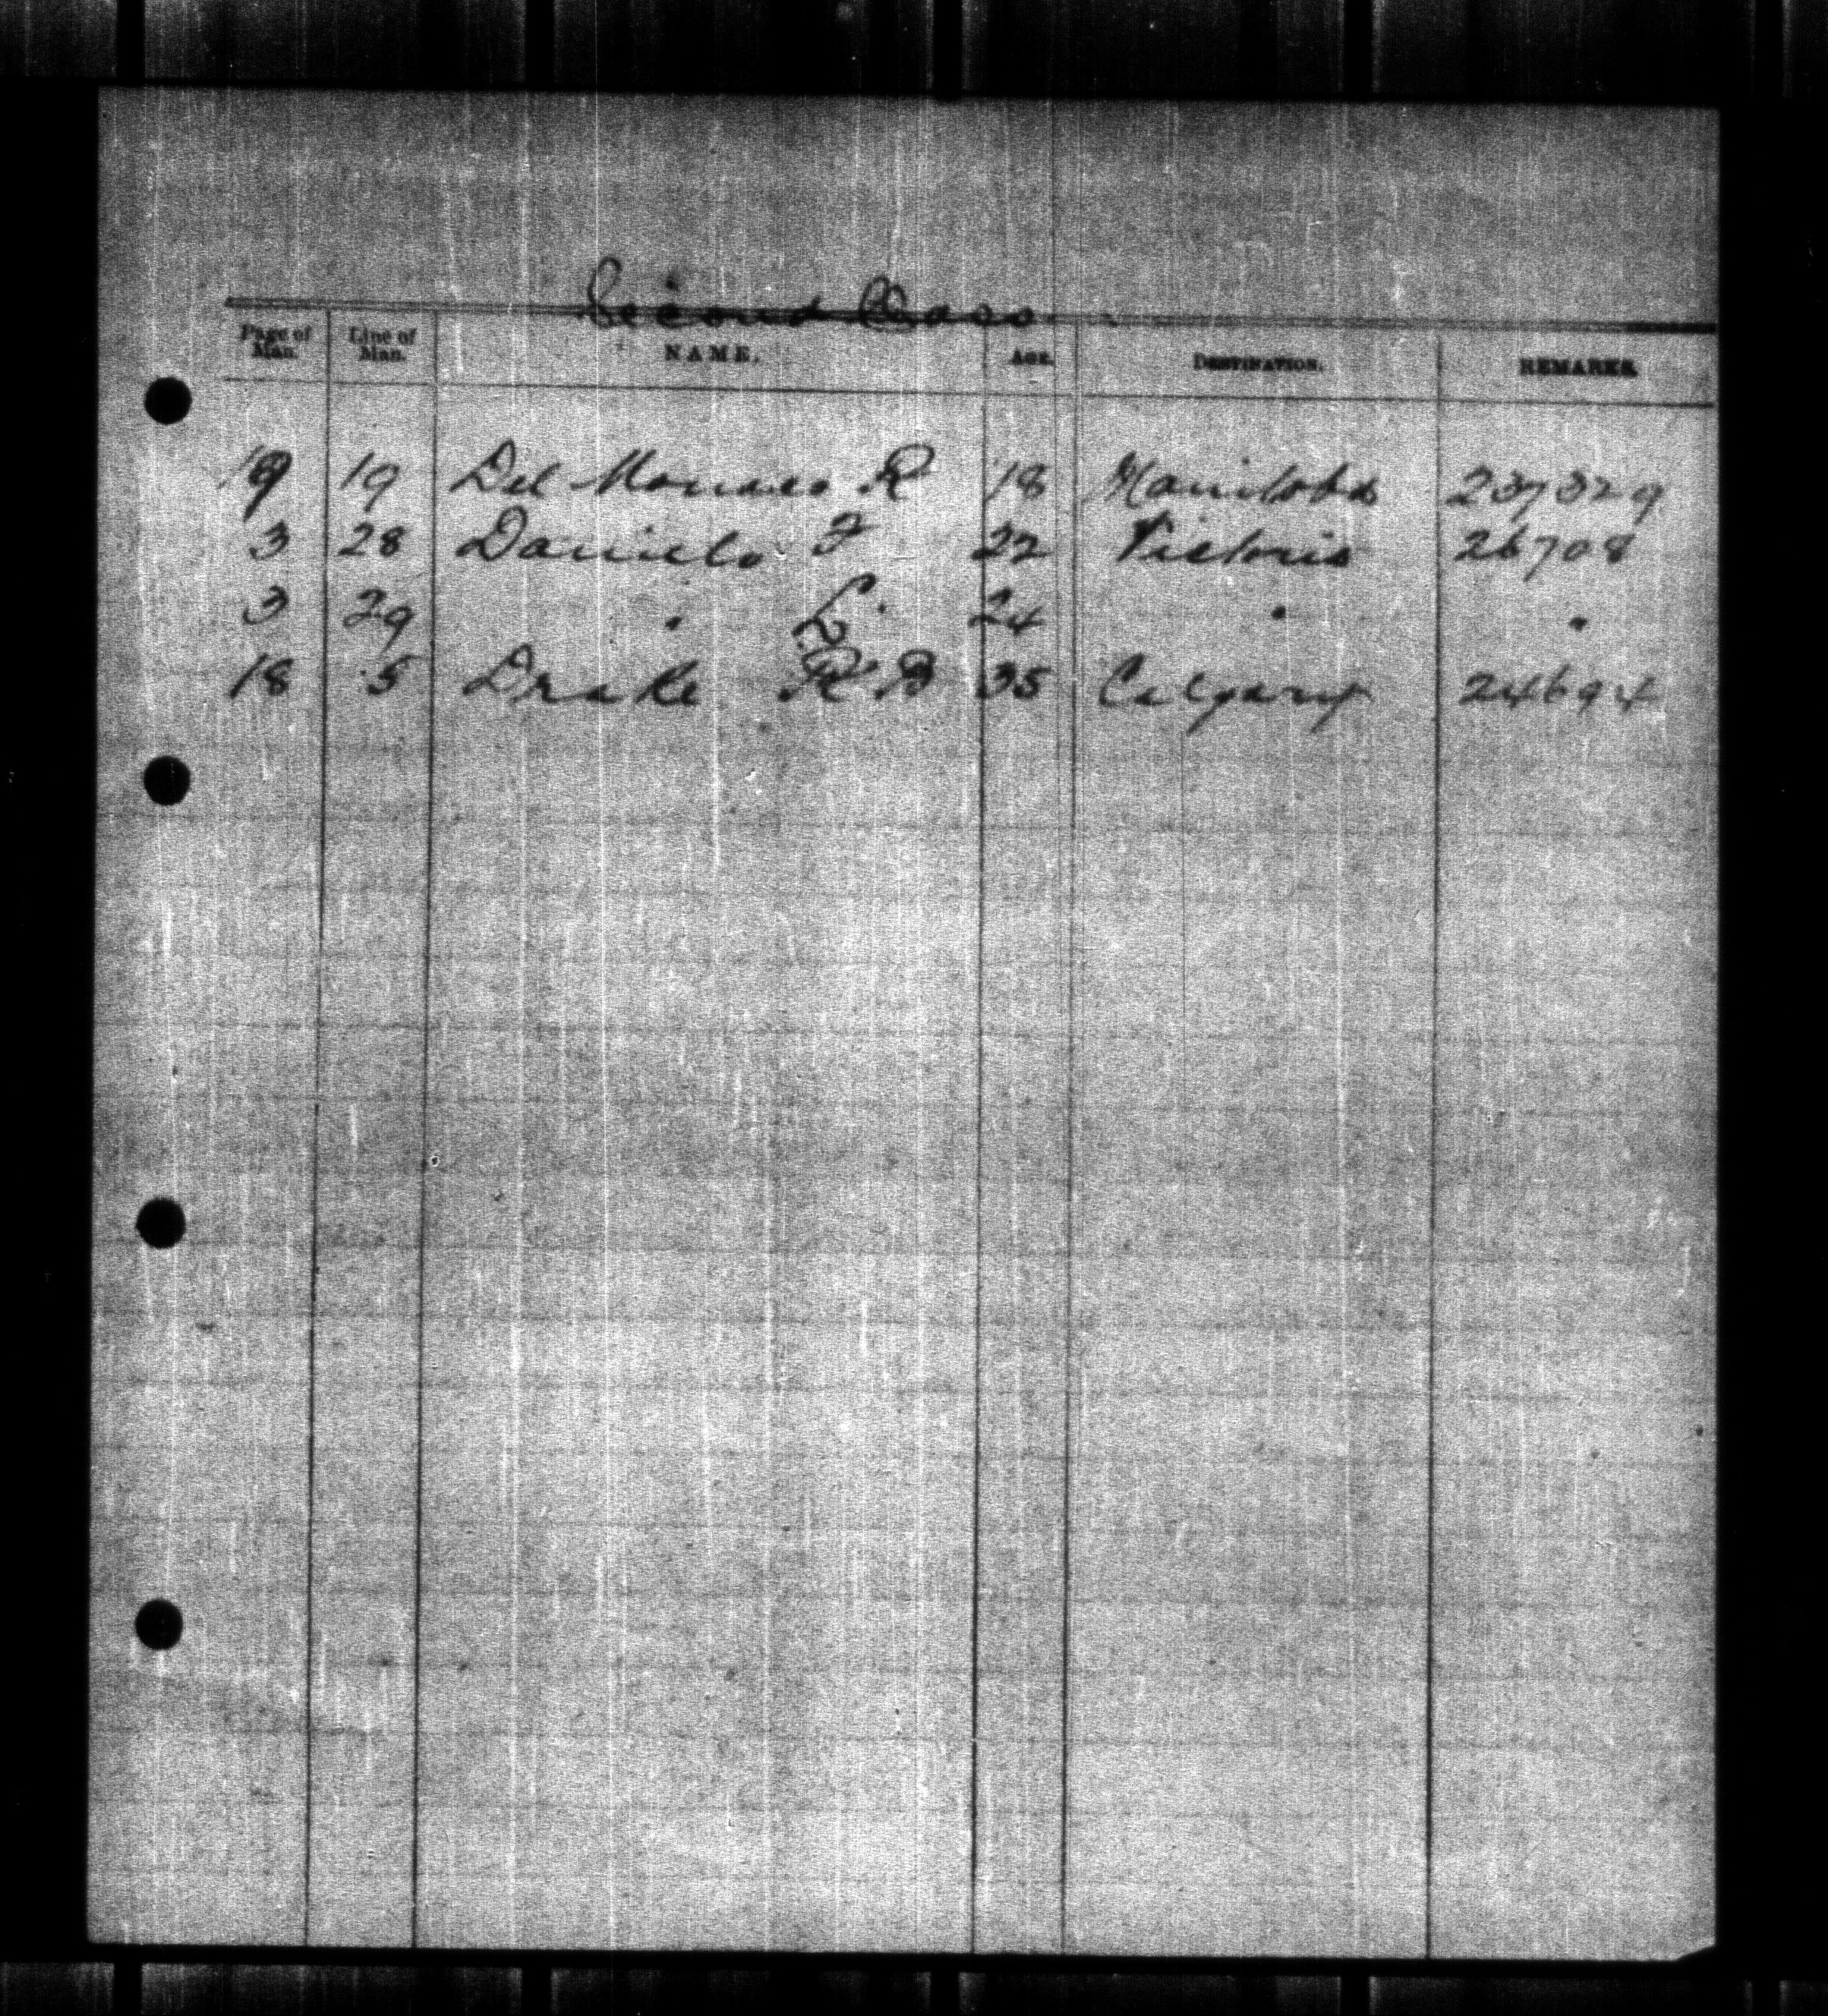 Second Class
Page of Man. Line of Man. NAME. AGE. DESTINATION. REMARKS.
19 19 Del Monaco R 18 Manitoba 237329
3 28 Daniels F 22 Victoria 26708
3 29 " L. 24 " "
18 5 Drake R B 35 Calgary 24694